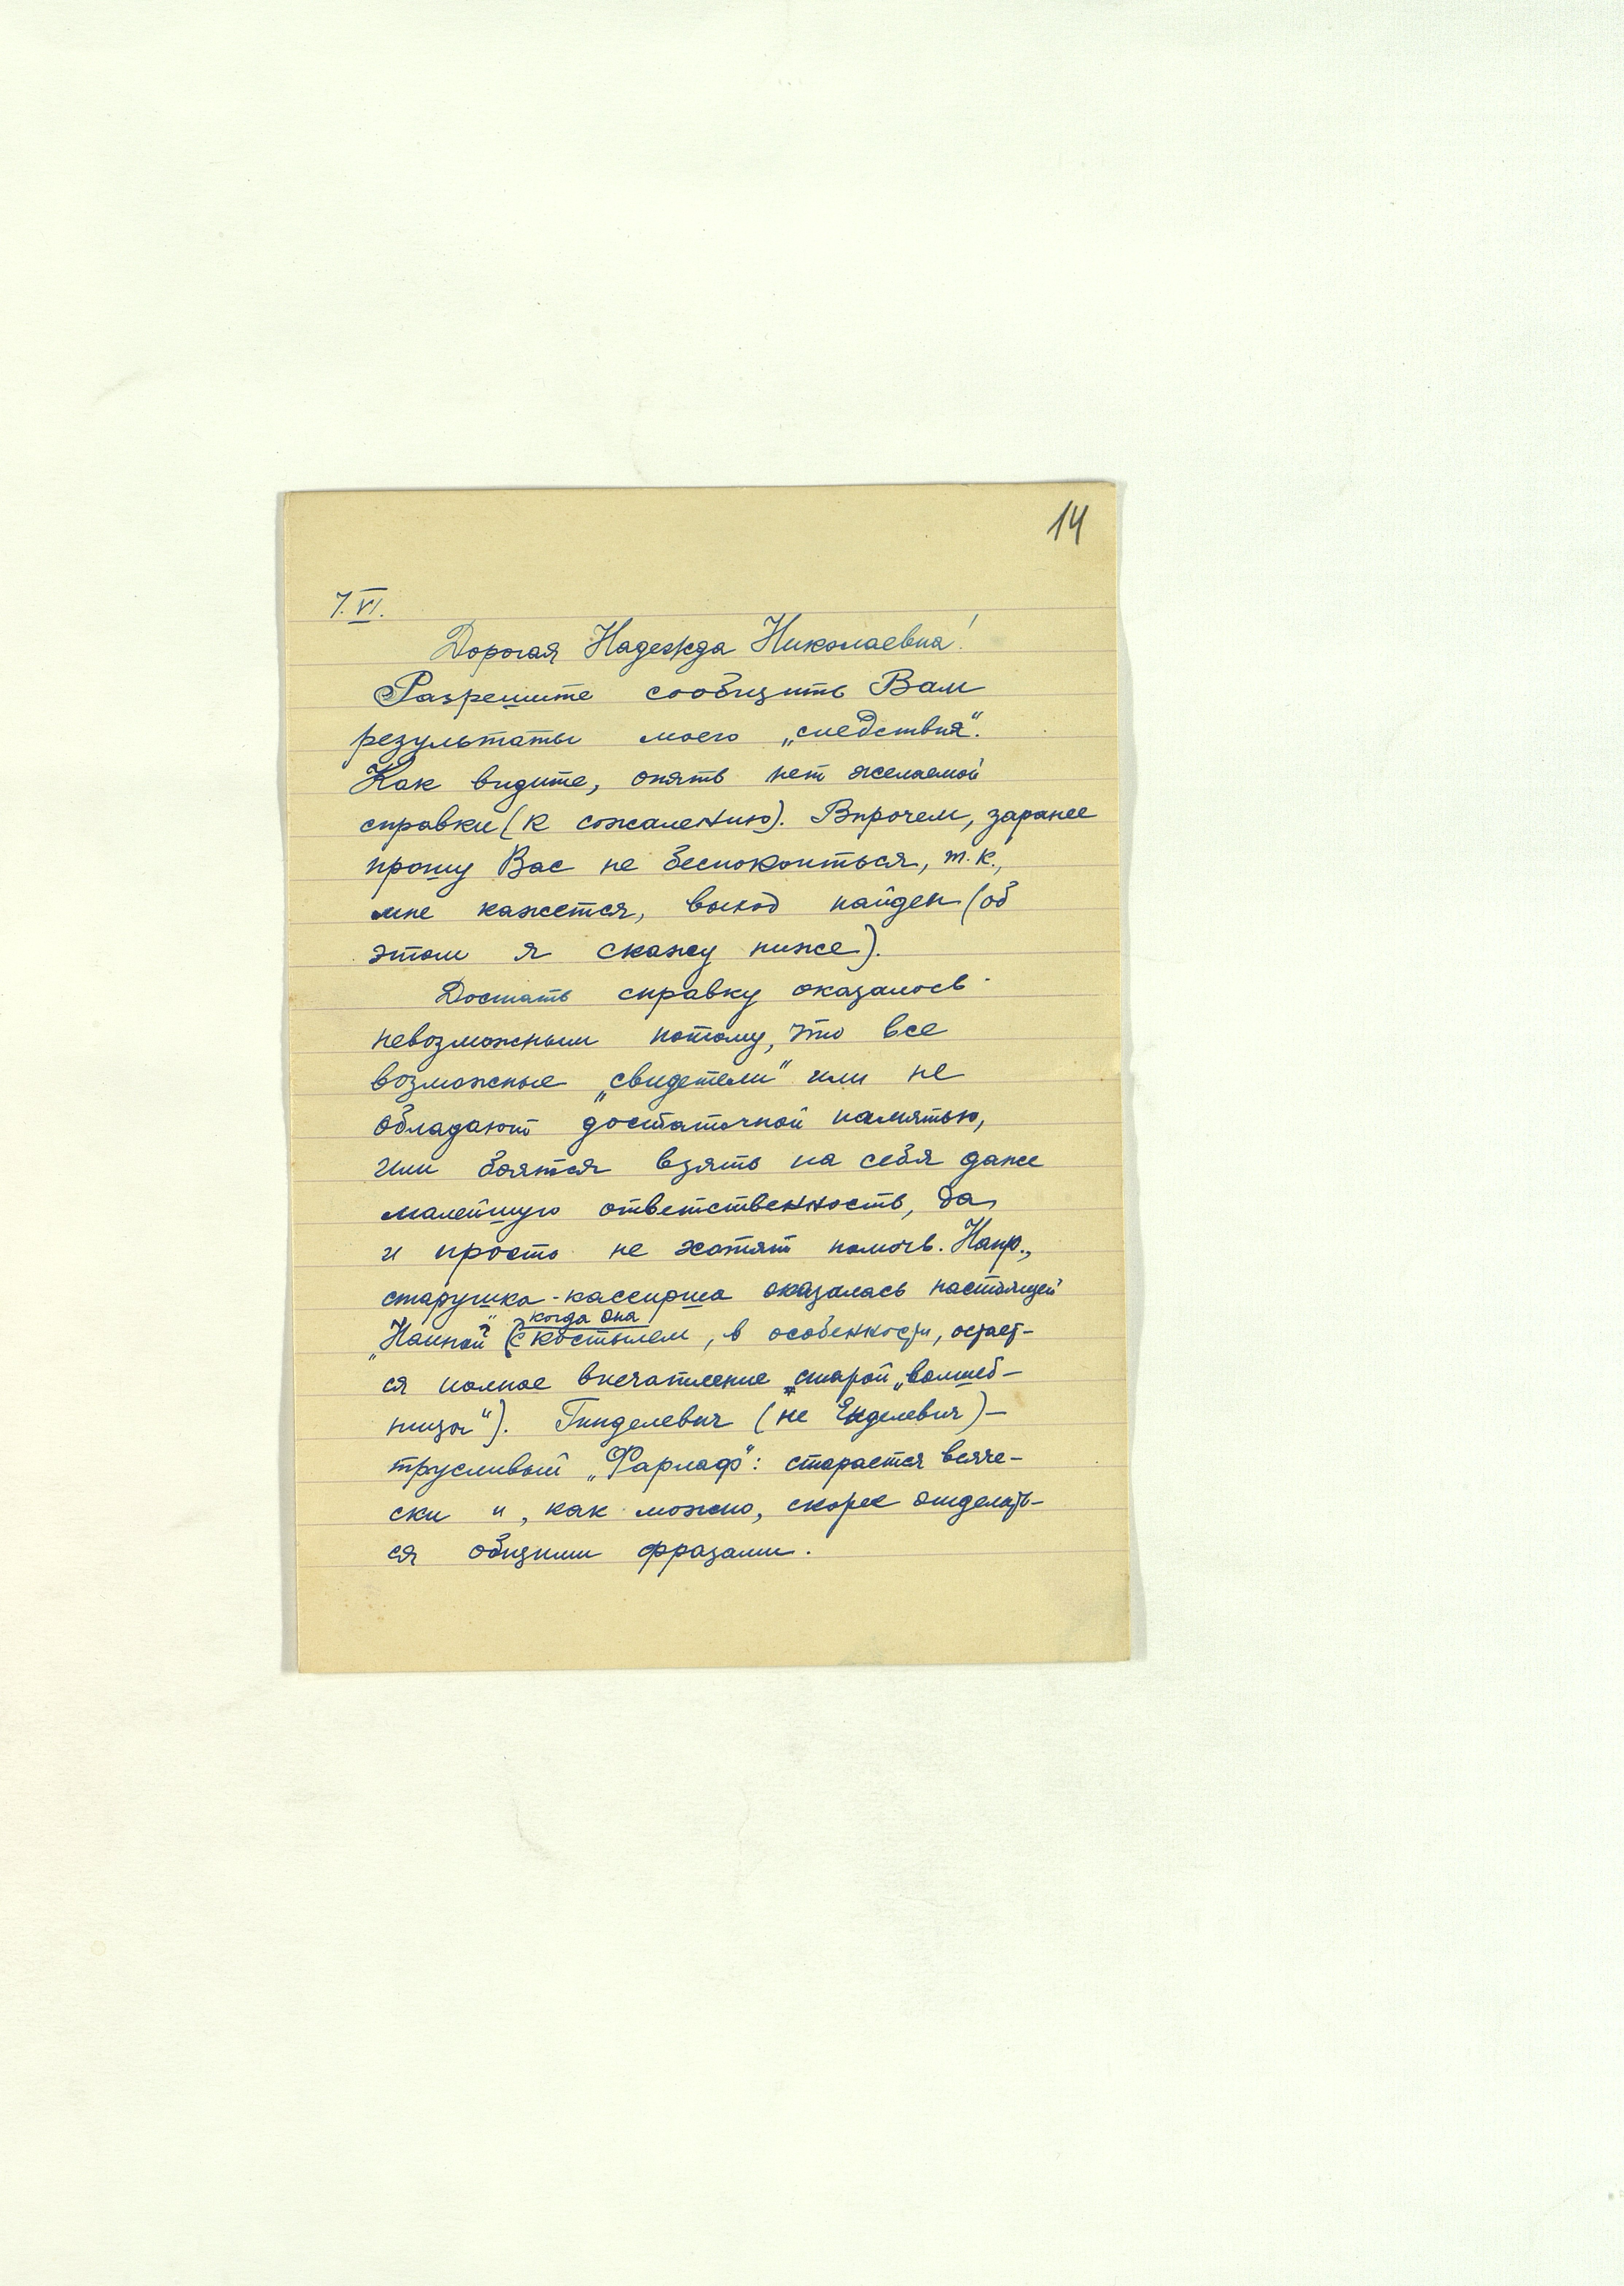 14
7.VI.
Дорогая Надежда Николаевна!
Разрешите сообщить Вам
результаты моего „следствия“.
Как видите, опять нет желаемой
справки (к сожалению). Впрочем, заранее
прошу Вас не беспокоиться, т.к.,
мне кажется, выход найден (об
этом я скажу ниже).
Достать справку оказалось
невозможным потому, что все
возможные „свидетели“ или не
обладают достаточной памятью,
или боятся взять на себя даже
малейшую ответственность, да
и просто не хотят помочь. Напр.,
старушка-кассирша оказалась настоящей
когда она
„Наиной“ (с костылем, в особенности, остает-
ся полное впечатление старой „волшеб-
ницы“). Гинделевич (не Енделевич) –
трусливый „Фарлаф“: старается всяче-
ски и, как можно, скорее отделать-
ся общими фразами.